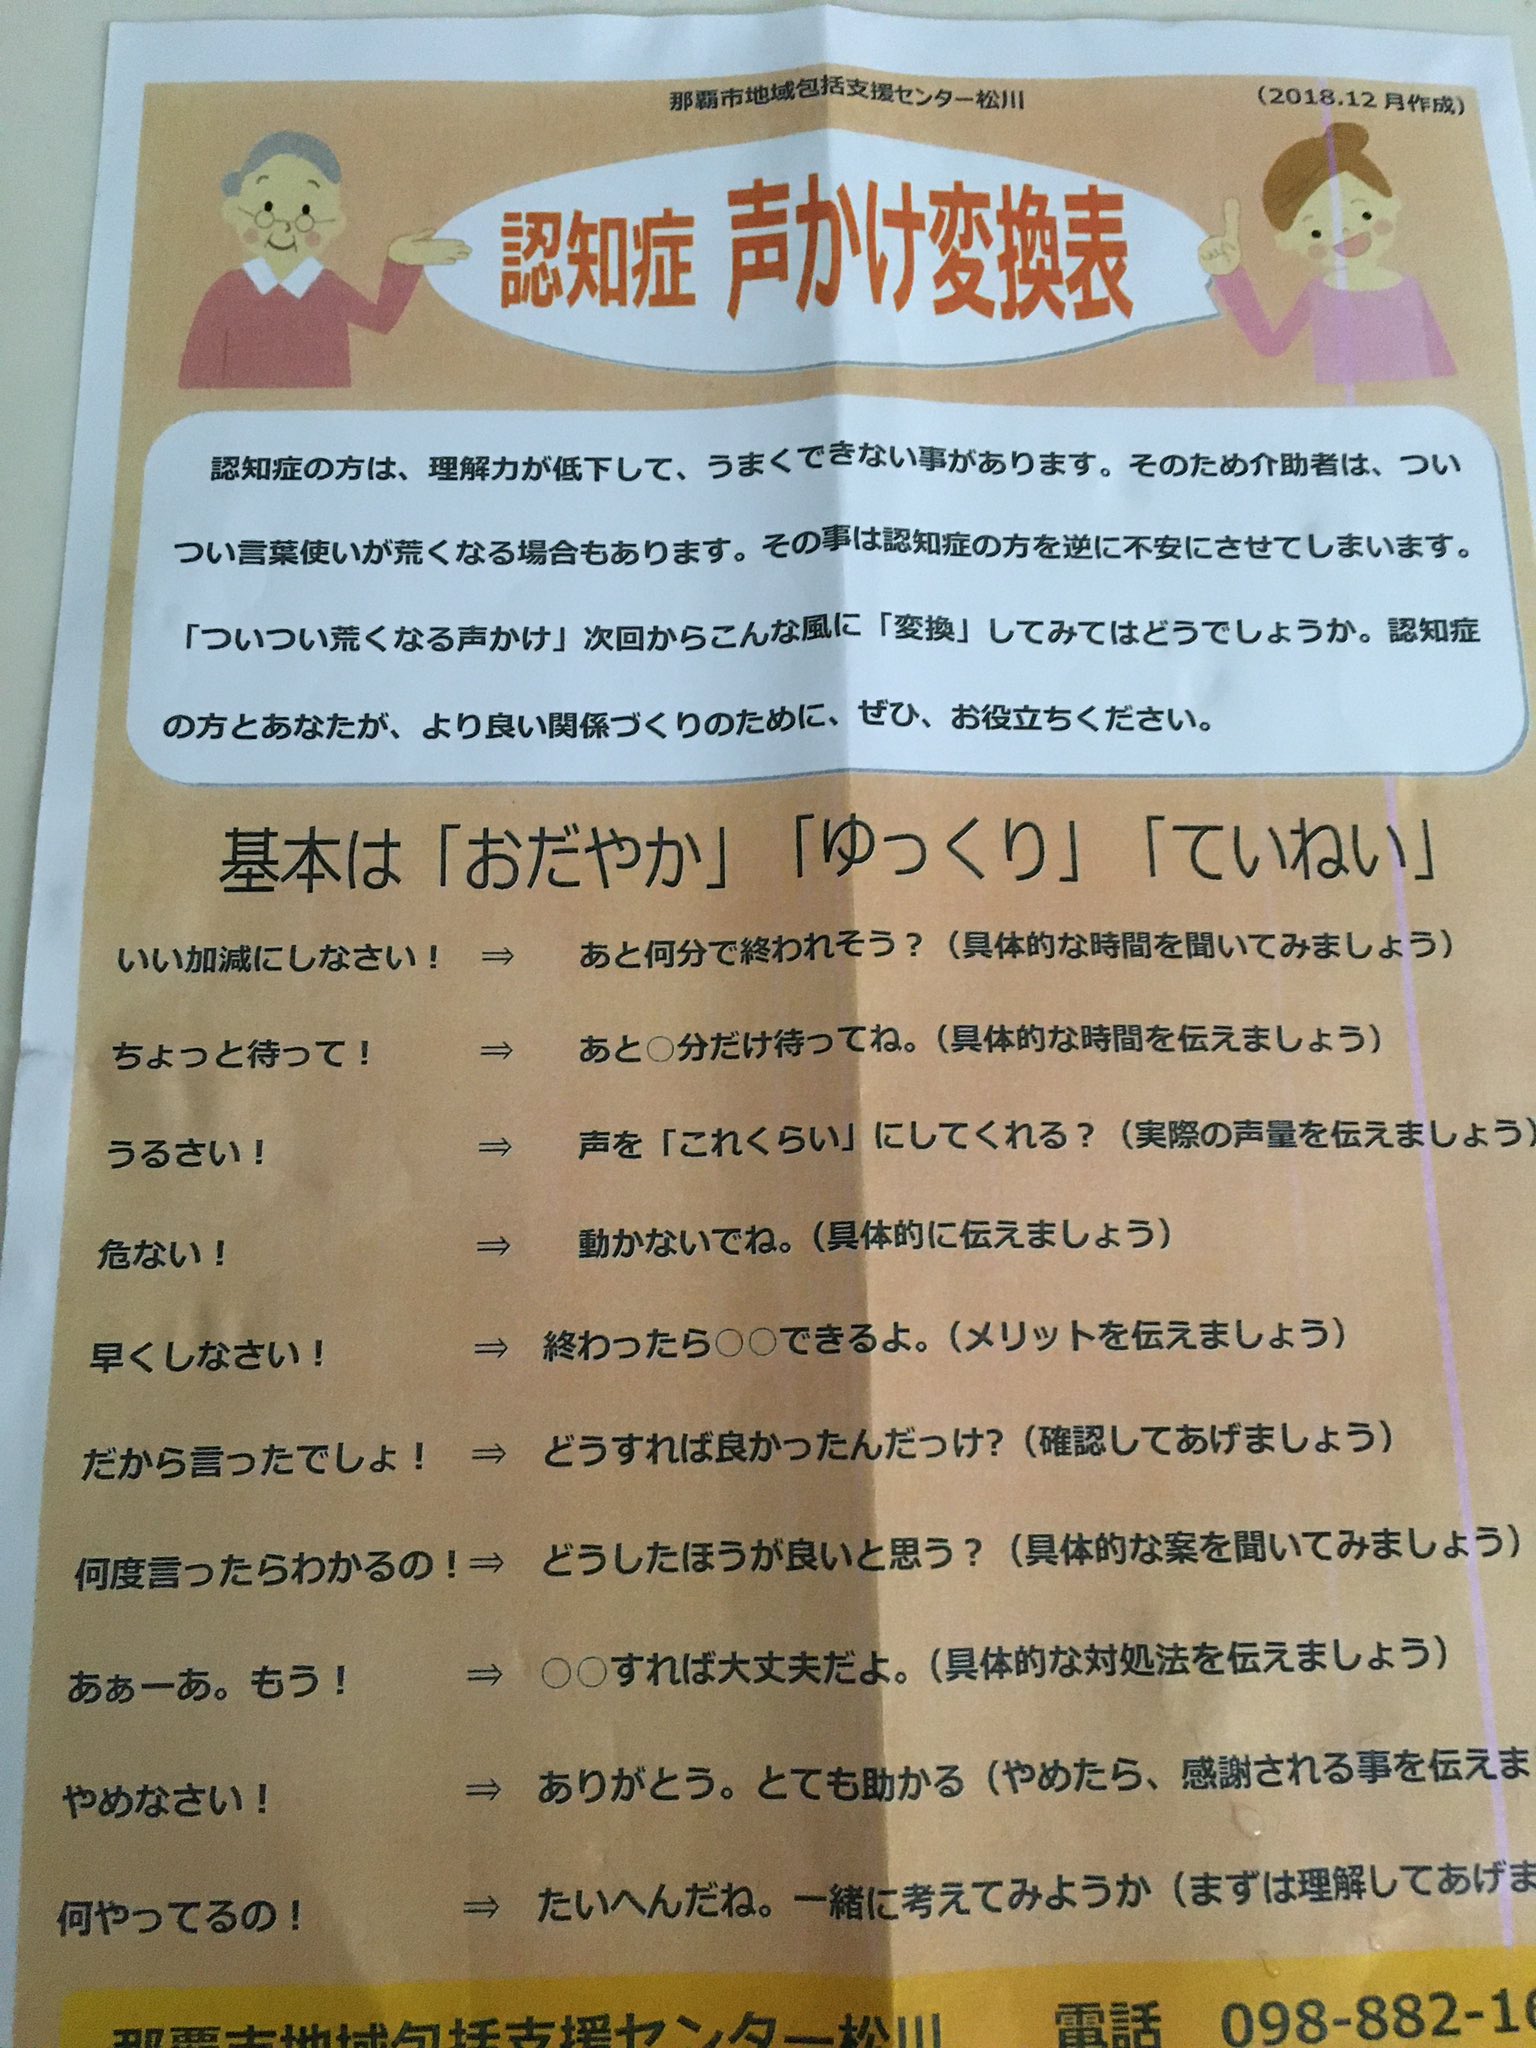 那覇市地域包括支援センター松川 （2018.12 月作成）
認知症 声かけ変換表
認知症の方は、理解力が低下して、うまくできない事があります。そのため介助者は、つい
つい言葉使いが荒くなる場合もあります。その事は認知症の方を逆に不安にさせてしまいます。
「ついつい荒くなる声かけ」次回からこんな風に「変換」してみてはどうでしょうか。認知症
の方とあなたが、より良い関係づくりのために、ぜひ、お役立ちください。
基本は「おだやか」「ゆっくり」「ていねい」
いい加減にしなさい！ ⇒ あと何分で終われそう？（具体的な時間を聞いてみましょう）
ちょっと待って！ ⇒ あと○分だけ待ってね。（具体的な時間を伝えましょう）
うるさい！ ⇒ 声を「これくらい」にしてくれる？（実際の声量を伝えましょう）
危ない！ ⇒ 動かないでね。（具体的に伝えましょう）
早くしなさい！ ⇒ 終わったら○○できるよ。（メリットを伝えましょう）
だから言ったでしょ！ ⇒ どうすれば良かったんだっけ?（確認してあげましょう）
何度言ったらわかるの！⇒ どうしたほうが良いと思う？（具体的な案を聞いてみましょう）
あぁーあ。もう！ ⇒ ○○すれば大丈夫だよ。（具体的な対処法を伝えましょう）
やめなさい！ ⇒ ありがとう。とても助かる（やめたら、感謝される事を伝えま
何やってるの！ ⇒ たいへんだね。一緒に考えてみようか（まずは理解してあげま
那覇市地域包括支援センター松川 電話 098-882-16